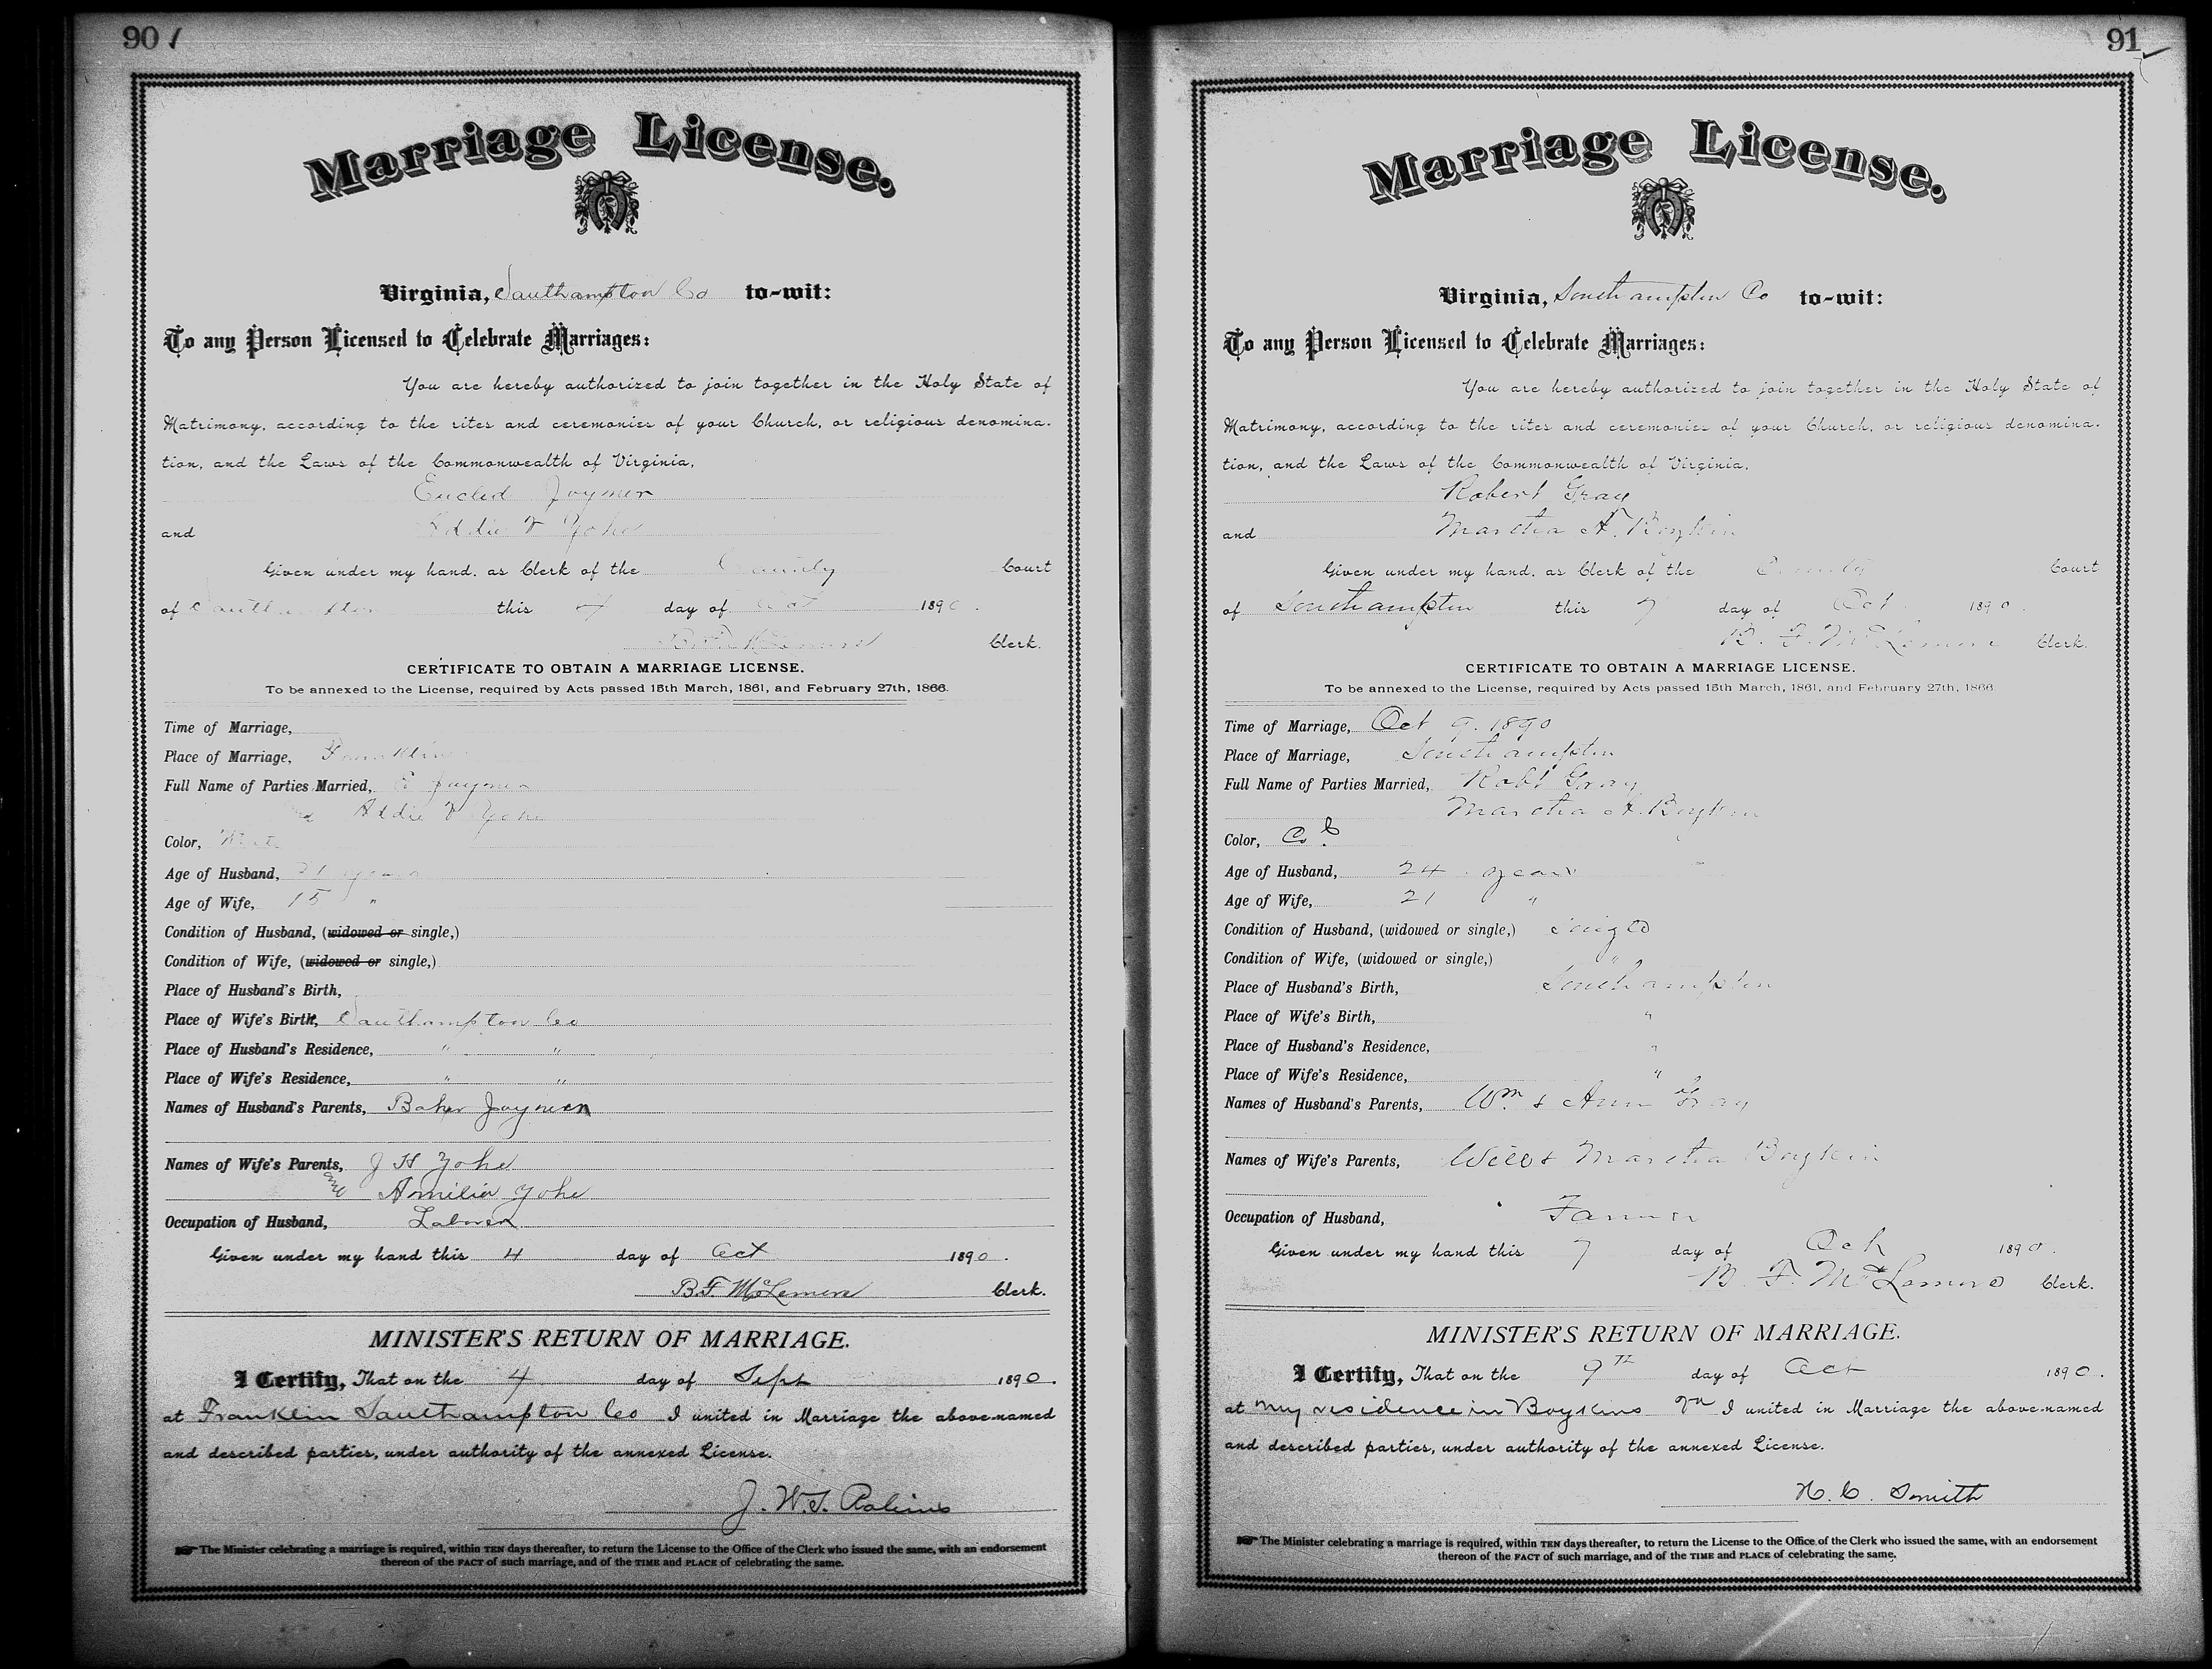 90
Marriage License.
Virginia, Southampton Co to-wit:
To any Person Licensed to Celebrate Marriages:
You are hereby authorized to join together in the Holy State of
Matrimony, according to the rites and ceremonies of your Church, or religious denomina-
tion, and the Laws of the Commonwealth of Virginia,
Euclid Joyner
and Addie V Yohe
Given under my hand, as Clerk of the County Court
of Southampton this 4 day of Oct 1890.
B.F. McLemore Clerk.
CERTIFICATE TO OBTAIN A MARRIAGE LICENSE.
To be annexed to the License, required by Acts passed 15th March, 1861, and February 27th, 1866.
Time of Marriage,
Place of Marriage, Franklin
Full Name of Parties Married, E Joyner
Addie V Yohe
Color, White
Age of Husband, 21 years
Age of Wife, 15 "
Condition of Husband, (widowed or single,)
Condition of Wife, (widowed or single,)
Place of Husband's Birth,
Place of Wife's Birth, Southampton Co
Place of Husband's Residence, " "
Place of Wife's Residence, " "
Names of Husband's Parents, Joyner
Names of Wife's Parents, J H Yohe
and Amilia Yohe
Occupation of Husband, Laborer
Given under my hand this 4 day of Oct 1890.
B.F. McLemore Clerk.
MINISTER'S RETURN OF MARRIAGE.
I Certify, That on the 4 day of Sept 1890.
at Franklin Southampton Co I united in Marriage the above-named
and described parties, under authority of the annexed License.
J. W.
☞ The Minister celebrating a marriage is required, within TEN days thereafter, to return the License to the Office of the Clerk who issued the same, with an endorsement
thereon of the FACT of such marriage, and of the TIME and PLACE of celebrating the same.
91
Marriage License.
Virginia, Southampton Co to-wit:
To any Person Licensed to Celebrate Marriages:
You are hereby authorized to join together in the Holy State of
Matrimony, according to the rites and ceremonies of your Church, or religious denomina-
tion, and the Laws of the Commonwealth of Virginia,
Robert Gray
and Martha A. Boykin
Given under my hand, as Clerk of the County Court
of Southampton this 7 day of Oct 1890.
B. F. McLemore Clerk.
CERTIFICATE TO OBTAIN A MARRIAGE LICENSE.
To be annexed to the License, required by Acts passed 15th March, 1861, and February 27th, 1866.
Time of Marriage, Oct 9. 1890
Place of Marriage, Southampton
Full Name of Parties Married, Robt Gray
Martha A. Boykin
Color, Col
Age of Husband, 24 years
Age of Wife, 21 "
Condition of Husband, (widowed or single,) Single
Condition of Wife, (widowed or single,) "
Place of Husband's Birth, Southampton
Place of Wife's Birth, "
Place of Husband's Residence, "
Place of Wife's Residence, "
Names of Husband's Parents, Wm & Ann Gray
Names of Wife's Parents, Will & Martha Boykin
Occupation of Husband, Farmer
Given under my hand this 7 day of Oct 1890.
B. F. McLemore Clerk.
MINISTER'S RETURN OF MARRIAGE.
I Certify, That on the 9th day of Oct 1890.
at my residence in Boykins Va I united in Marriage the above-named
and described parties, under authority of the annexed License.
H. C. Smith
☞ The Minister celebrating a marriage is required, within TEN days thereafter, to return the License to the Office of the Clerk who issued the same, with an endorsement
thereon of the FACT of such marriage, and of the TIME and PLACE of celebrating the same.